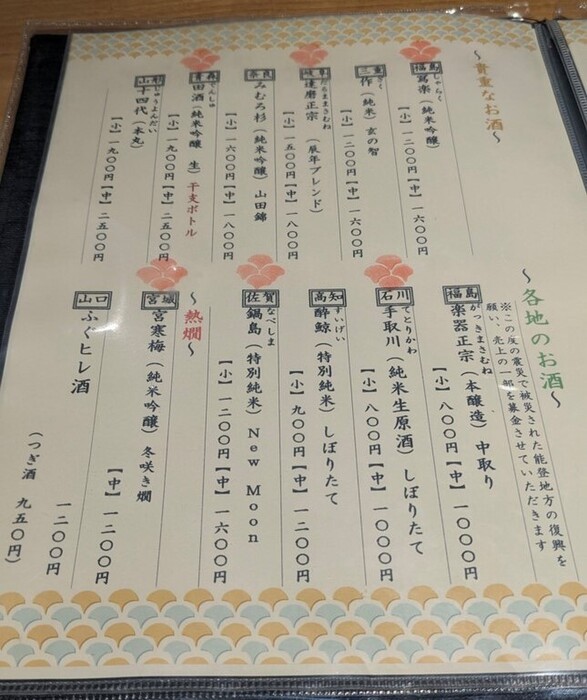 ～貴重なお酒～
福島
じゃらく
寫楽（純米吟醸）
【小】一二〇〇円【中】一六〇〇円
三重
ざく
作（純米）玄の智
【小】一二〇〇円【中】一六〇〇円
岐阜
だるままさむね
達磨正宗（辰年ブレンド）
【小】一五〇〇円【中】一八〇〇円
奈良
みむろ杉（純米吟醸）山田錦
【小】一六〇〇円【中】一八〇〇円
青森
でんしゅ
田酒（純米吟醸 生）干支ボトル
【小】一九〇〇円【中】二五〇〇円
山形
じゅうよんだい
十四代（本丸）
【小】一九〇〇円【中】二五〇〇円
～各地のお酒～
※この度の震災で被災された能登地方の復興を
願い、売上の一部を募金させていただきます
福島
がっきまさむね
楽器正宗（本醸造）中取り
【小】八〇〇円【中】一〇〇〇円
石川
てどりかわ
手取川（純米生原酒）しぼりたて
【小】八〇〇円【中】一〇〇〇円
高知
すいげい
酔鯨（特別純米）しぼりたて
【小】九〇〇円【中】一二〇〇円
佐賀
なべしま
鍋島（特別純米）New Moon
【小】一二〇〇円【中】一六〇〇円
～熱燗～
宮城
宮寒梅（純米吟醸）冬咲き燗
【中】一二〇〇円
山口
ふぐヒレ酒
一二〇〇円
（つぎ酒 九五〇円）